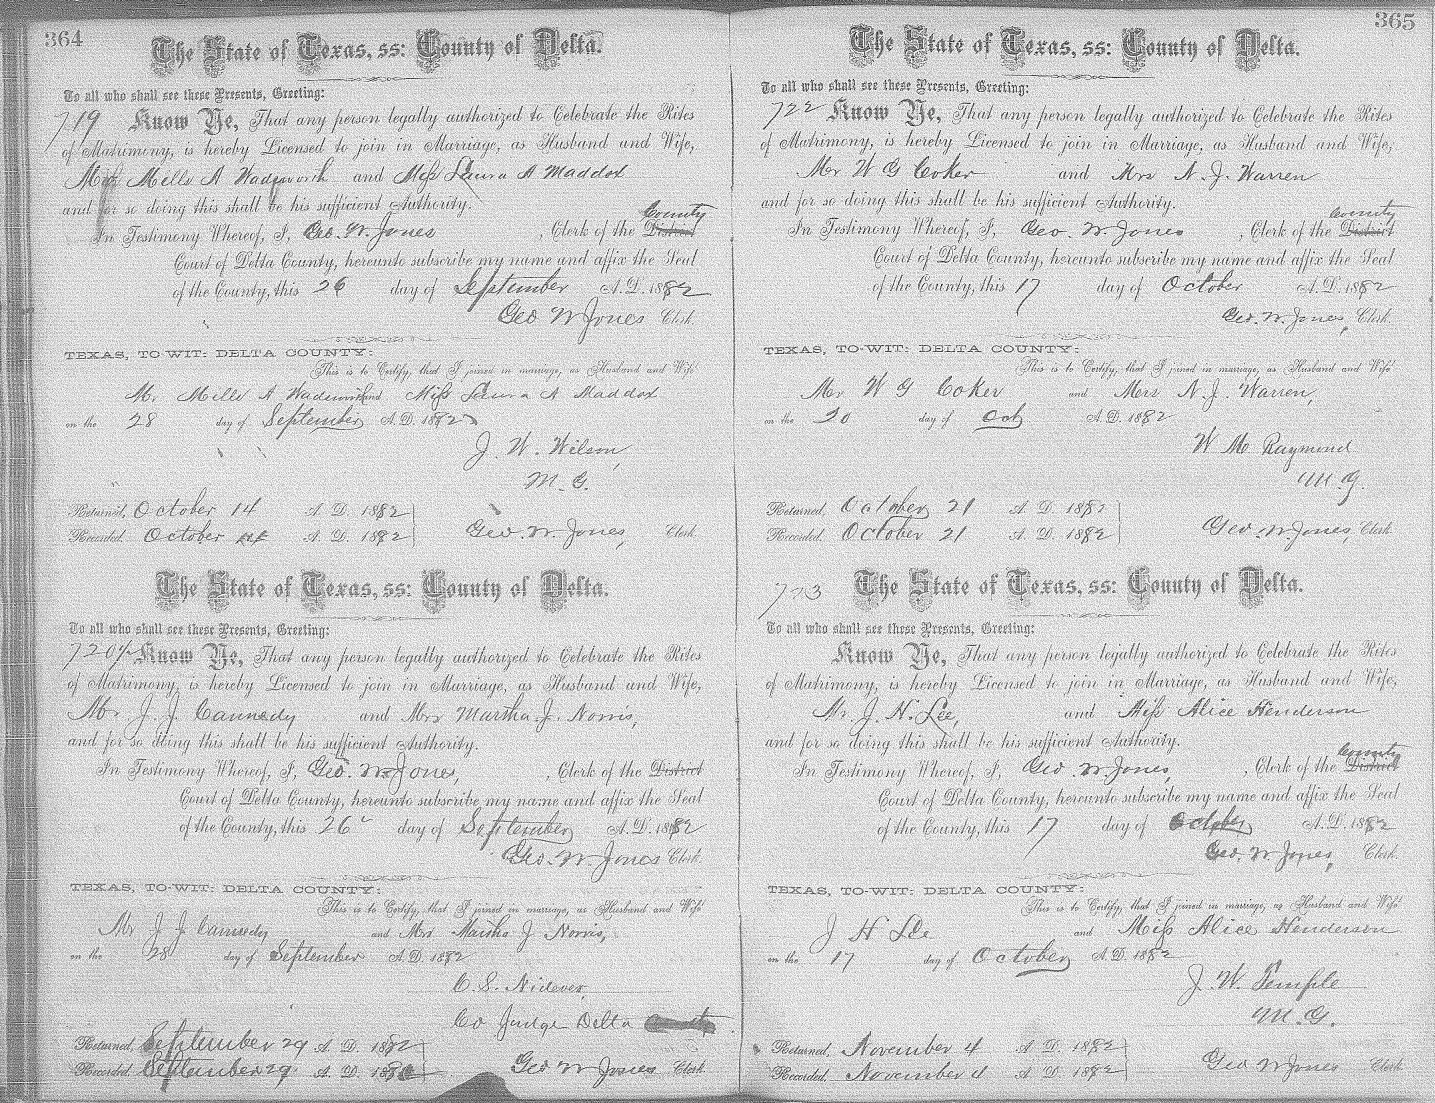 364
The State of Texas, ss: County of Delta.
To all who shall see these Presents, Greeting:
719 Know Ye, That any person legally authorized to Celebrate the Rites
of Matrimony, is hereby Licensed to join in Marriage, as Husband and Wife,
Mr Mills A Wadsworth and Miss Laura A Maddox
and for so doing this shall be his sufficient Authority.
County
In Testimony Whereof, I, Geo. W. Jones, Clerk of the District
Court of Delta County, hereunto subscribe my name and affix the Seal
of the County, this 26 day of September A.D. 1882
Geo W Jones Clerk.
TEXAS, TO-WIT: DELTA COUNTY:
This is to Certify, that I joined in marriage, as Husband and Wife
Mr Mills A Wadsworth and Miss Laura A Maddox
on the 28 day of September A.D. 1882
J. W. Wilson,
M. G.
Returned, October 14 A. D. 1882
Recorded, October A. D. 1882 Geo. W. Jones, Clerk
The State of Texas, ss: County of Delta.
To all who shall see these Presents, Greeting:
720 Know Ye, That any person legally authorized to Celebrate the Rites
of Matrimony, is hereby Licensed to join in Marriage, as Husband and Wife,
Mr. J. J. Cannedy and Mrs Martha J. Norris,
and for so doing this shall be his sufficient Authority.
In Testimony Whereof, I, Geo. W. Jones, , Clerk of the District
Court of Delta County, hereunto subscribe my name and affix the Seal
of the County, this 26 day of September A.D. 1882
Geo. W. Jones Clerk.
TEXAS, TO-WIT: DELTA COUNTY:
This is to Certify, that I joined in marriage, as Husband and Wife
Mr J J Cannedy and Mrs Martha J Norris,
on the 28 day of September A.D. 1882
C. S. Nidever
Co Judge Delta
Returned, September 29 A. D. 1882
Recorded, September 29 A. D. 1882 Geo W Jones Clerk
365
The State of Texas, ss: County of Delta.
To all who shall see these Presents, Greeting:
722 Know Ye, That any person legally authorized to Celebrate the Rites
of Matrimony, is hereby Licensed to join in Marriage, as Husband and Wife,
Mr W G Coker and Mrs N. J. Warren
and for so doing this shall be his sufficient Authority.
County
In Testimony Whereof, I, Geo. W Jones, Clerk of the District
Court of Delta County, hereunto subscribe my name and affix the Seal
of the County, this 17 day of October A.D. 1882
Geo. W. Jones, Clerk.
TEXAS, TO-WIT: DELTA COUNTY:
This is to Certify, that I joined in marriage, as Husband and Wife
Mr W G Coker and Mrs N. J. Warren,
on the 20 day of Oct A.D. 1882
W Mc Raymond
M. G.
Returned, October 21 A. D. 1882
Recorded, October 21 A. D. 1882 Geo. W Jones, Clerk
723 The State of Texas, ss: County of Delta.
To all who shall see these Presents, Greeting:
Know Ye, That any person legally authorized to Celebrate the Rites
of Matrimony, is hereby Licensed to join in Marriage, as Husband and Wife,
Mr. J. H. Lee, and Miss Alice Henderson
and for so doing this shall be his sufficient Authority.
County
In Testimony Whereof, I, Geo. W. Jones, , Clerk of the District
Court of Delta County, hereunto subscribe my name and affix the Seal
of the County, this 17 day of October A.D. 1882
Geo. W. Jones, Clerk.
TEXAS, TO-WIT: DELTA COUNTY:
This is to Certify, that I joined in marriage, as Husband and Wife
J H Lee and Miss Alice Henderson
on the 17 day of October A.D. 1882
J. W. Temple
M. G.
Returned, November 4 A. D. 1882
Recorded, November 4 A. D. 1882 Geo W Jones Clerk